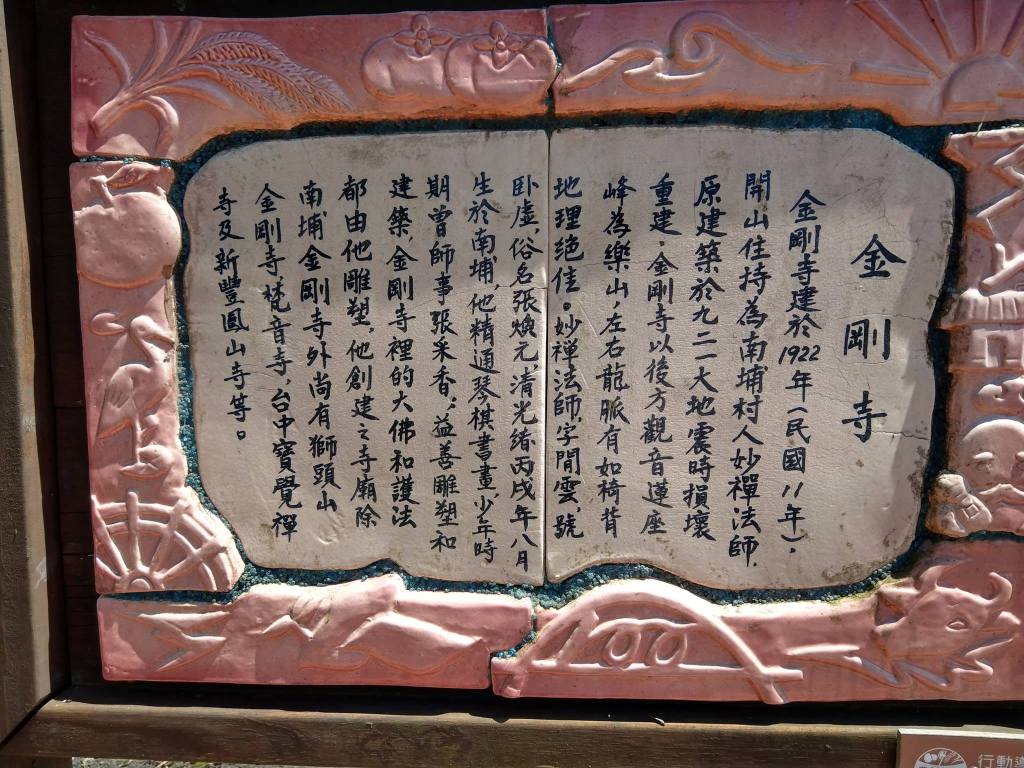 金剛寺
金剛寺建於1922年(民國11年),
開山住持為南埔村人妙禪法師.
原建築於九二一大地震時損壞
重建,金剛寺以後方觀音蓮座
峰為樂山,左右龍脈有如椅背
地理絕佳。妙禅法師,字閒雲,號
卧虛,俗名張煥元,清光緒丙戌年八月
生於南埔,他精通琴棋書畫,少年時
期曾師事張采香,益善雕塑和
建築,金剛寺裡的大佛和護法
都由他雕塑,他創建之寺廟除
南埔金剛寺外尚有獅頭山
金剛寺,梵音寺,台中寶覺禪
寺及新豐鳳山寺等。
行動導